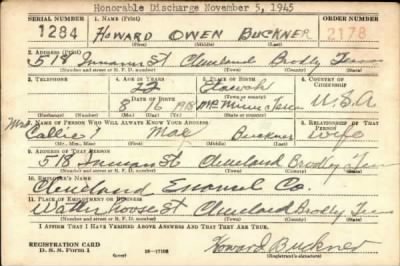 Honorable Discharge November 5, 1945
SERIAL NUMBER 1. NAME (Print) ORDER NUMBER
1284 HOWARD OWEN BUCKNER 2178
(First) (Middle) (Last)
2. ADDRESS (Print)
518 Inman St Cleveland Bradly Tenn
(Number and street or R. F. D. number) (Town) (County) (State)
3. TELEPHONE 4. AGE IN YEARS 5. PLACE OF BIRTH 6. COUNTRY OF CITIZENSHIP
22 Etowah
DATE OF BIRTH
8 16 1918 McMinn Tenn U.S.A
(Exchange) (Number) (Mo.) (Day) (Yr.) (Town or county) (State or country)
7. NAME OF PERSON WHO WILL ALWAYS KNOW YOUR ADDRESS 8. RELATIONSHIP OF THAT PERSON
Mrs Callie Mae Buckner wife
(Mr., Mrs., Miss) (First) (Middle) (Last)
9. ADDRESS OF THAT PERSON
518 Inman St Cleveland Bradly Tenn
(Number and street or R. F. D. number) (Town) (County) (State)
10. EMPLOYER'S NAME
Cleveland Enamel Co.
11. PLACE OF EMPLOYMENT OR BUSINESS
St Cleveland Bradly Tenn
(Number and street or R. F. D. number) (Town) (County) (State)
I AFFIRM THAT I HAVE VERIFIED ABOVE ANSWERS AND THAT THEY ARE TRUE.
REGISTRATION CARD
D. S. S. Form 1 16-17105 Howard Buckner
(over) (Registrant's signature)